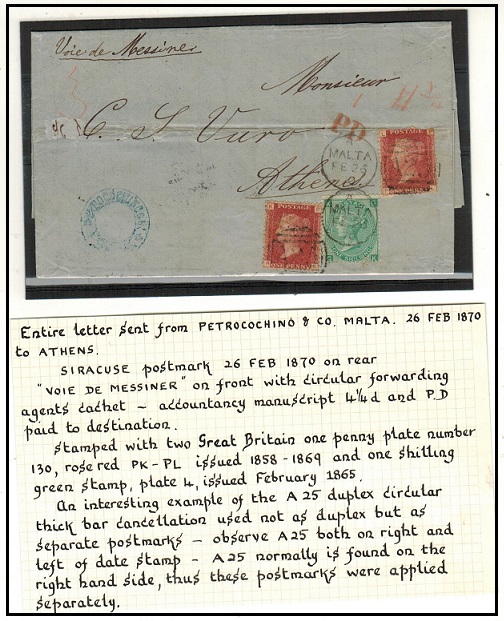 Voie de Messine
Monsieur
C. S. Vuro
Athènes
P.D
MALTA
FE 26
POSTAGE
ONE PENNY
MALTA
POSTAGE
ONE PENNY
Entire letter sent from PETROCOCHINO & CO. MALTA. 26 FEB 1870
to ATHENS.
SIRACUSE postmark 26 FEB 1870 on rear
"VOIE DE MESSINER" on front with circular forwarding
agents cachet – accountancy manuscript 4¼d and P.D
paid to destination.
Stamped with two Great Britain one penny plate number
130, rose red PK-PL issued 1858-1869 and one shilling
green stamp, plate 4, issued February 1865.
An interesting example of the A25 duplex circular
thick bar cancellation used not as duplex but as
separate postmarks – observe A25 both on right and
left of date stamp – A25 normally is found on the
right hand side, thus these postmarks were applied
separately.